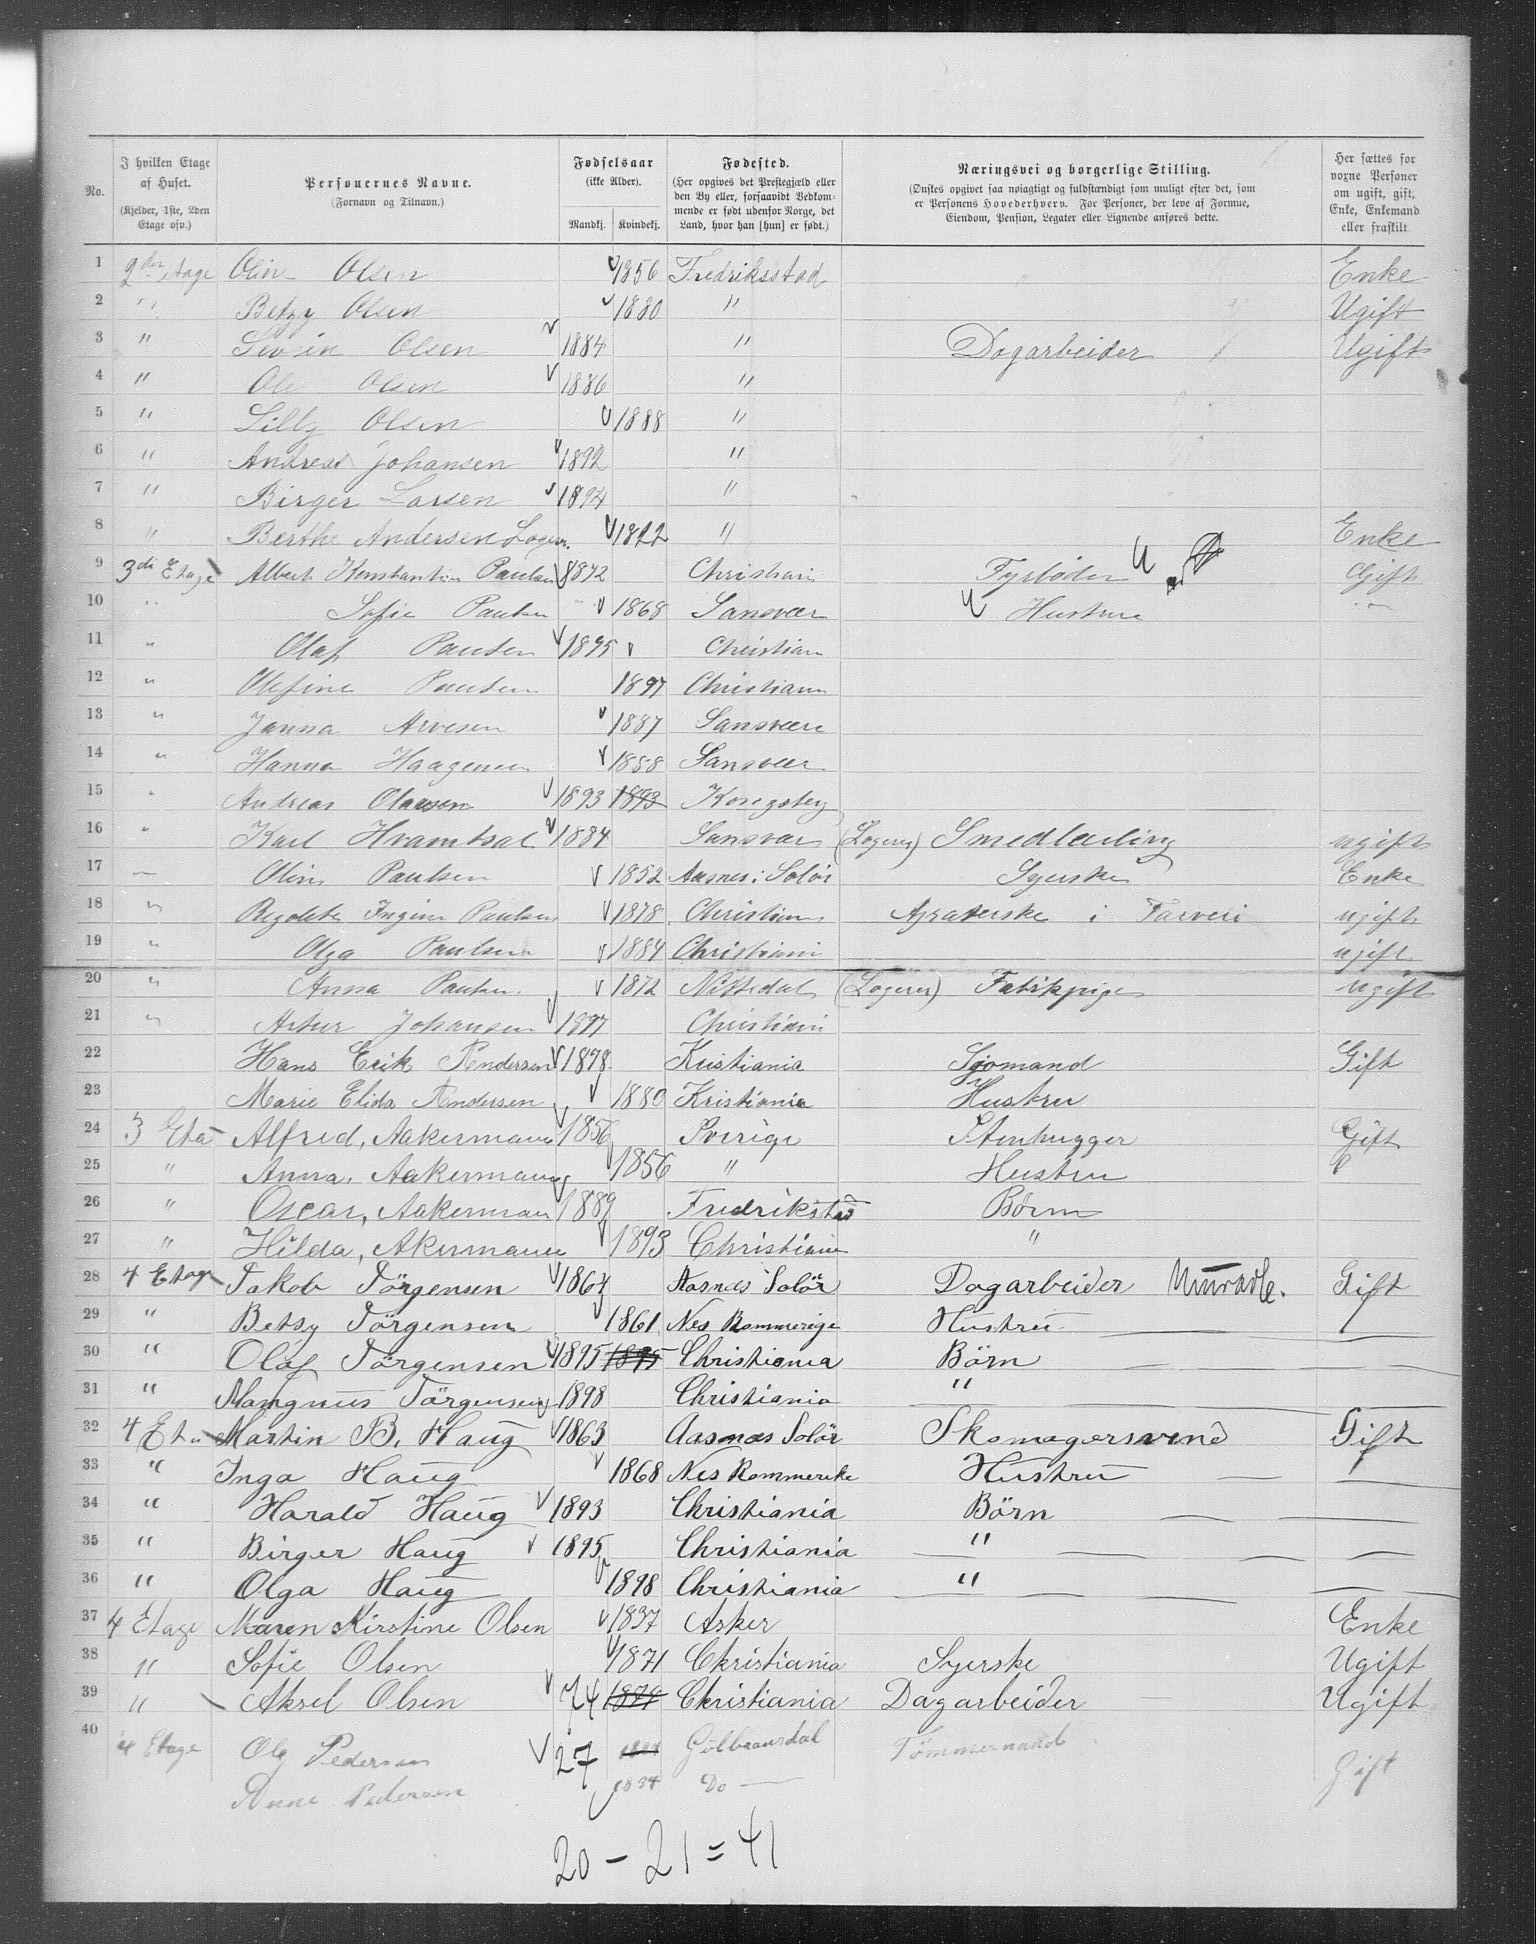 No.
I hvilken Etage af Huset.
(Kjelder, 1ste, 2den Etage osv.)
Personernes Navne.
(Fornavn og Tilnavn.)
Fødselsaar
(ikke Alder).
Mandkj. Kvindekj.
Fødested.
(Her opgives det Prestegjæld eller
den By eller, forsaavidt Vedkom-
mende er født udenfor Norge, det
Land, hvor han [hun] er født.)
Næringsvei og borgerlige Stilling.
(Ønskes opgivet saa nøiagtigt og fuldstændigt som muligt efter det, som
er Personens Hovederhverv. For Personer, der leve af Formue,
Eiendom, Pension, Legater eller Lignende anføres dette.
Her sættes for
voxne Personer
om ugift, gift,
Enke, Enkemand
eller fraskilt
1 2den Etage Oline Olsen 1856 Fredriksstad Enke
2 " Betzy Olsen 1880 " Ugift
3 " Olsen 1884 " Dagarbeider Ugift
4 " Ole Olsen 1886 "
5 " Lilly Olsen 1888 "
6 " Andreas Johansen 1892 "
7 " Birger Larsen 1894 "
8 " Berthe Andersen Loger. 1822 " Enke
9 3di Etage Albert Konstantin Paulsen 1872 Christiani Fyrbøder Gift
10 " Sofie Paulsen 1868 Sansvær Hustru "
11 " Olaf Paulsen 1895 Christian
12 " Olefine Paulsen 1897 Christiann
13 " Janna Arvesen 1887 Sansvære
14 " Hanna Haagensen 1888 Sansvær
15 " Andreas Olausen 1893 1893 Kongsberg
16 " Karl 1884 Sansvær (Logerer) Smedlærling ugift
17 " Oline Paulsen 1852 Aasnes i Solør Syerske Enke
18 " Ragolete Ingine Paulsen 1878 Christiania i ugift
19 " Olga Paulsen 1884 Christiani ugift
20 " Anna Paulsen 1872 Nittedal (Logerer) Fabrikpige ugift
21 " Artur Johansen 1897 Christiani
22 Hans Erik Andersen 1878 Kristiania Sjømand Gift
23 Marie Elida Andersen 1880 Kristiania Hustru
24 3 Eta Alfred, Aakermann 1856 Sverige Stenhugger Gift
25 " Anna, Aakermann 1856 " Hustru
26 " Oscar, Aakerman 1889 Fredrikstad Børn
27 " Hilda, Akermann 1893 Christiania "
28 4 Etage Jakob Jörgensen 1864 Aasnæs Solör Dagarbeider Murarb. Gift
29 " Betsy Jörgensen 1861 Nes Rommerige Hustru
30 " Olaf Jörgensen 1895 1895 Christiania Börn
31 " Mangnus Jörgensen 1898 Christiania "
32 4 Eta Martin B. Haug 1863 Aasnæs Solör Skomagersvend Gift
33 " Inga Haug 1868 Nes Rommerike Hustru
34 " Harald Haug 1893 Christiania Börn
35 " Birger Haug 1895 Christiania "
36 " Olga Haug 1898 Christiania "
37 4 Etage Maren Kirstine Olsen 1837 Asker Enke
38 " Sofie Olsen 1871 Christiania Syerske Ugift
39 " Aksel Olsen 74 1874 Christiania Dagarbeider Ugift
40 4 Etage Ole Pedersen 27 Gulbransdal Tömmermand Gift
Anne Pedersen 1834 Do
20 - 21 = 41